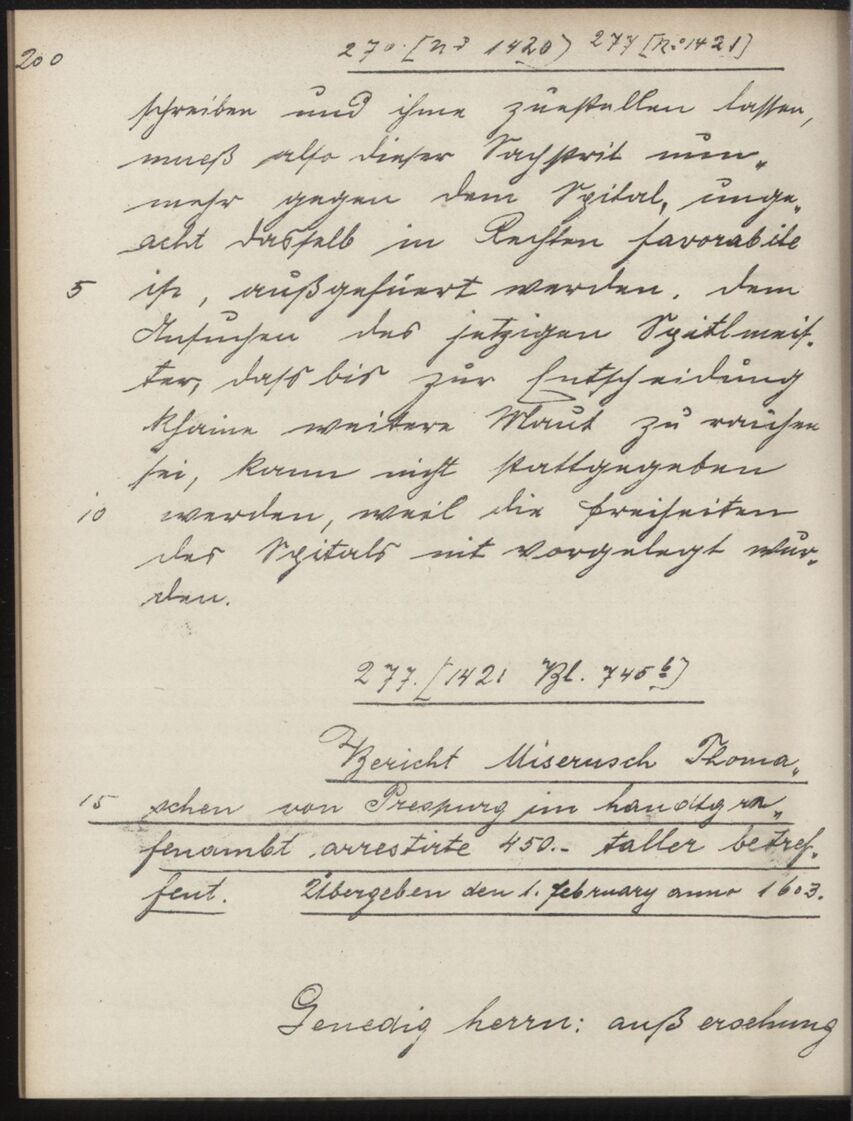 200
270. [No 1420) 277 [No 1421]
schreiben und ihme zuestellen lassen,
mueß also dieser Sachstrit nun„
mehr gegen dem Spital, unge„
acht dasselb in Rechten favorabile
5 ist, außgefüert werden. Dem
Ansuchen des jetzigen Spitlmeis„
ter, dass bis zur Entscheidung
khaine weitere Maut zu raichen
sei, kann nicht stattgegeben
10 werden, weil die Freiheiten
des Spitals nit vorgelegt wur„
den.
277. [1421 Bl. 745b]
Bericht Miserusch Thoma„
15 schen von Prespurg im handtgra„
fenambt arrestirte 450.- taller betref„
fent. Übergeben den 1. february anno 1603.
Genedig herrn: auß ersehung